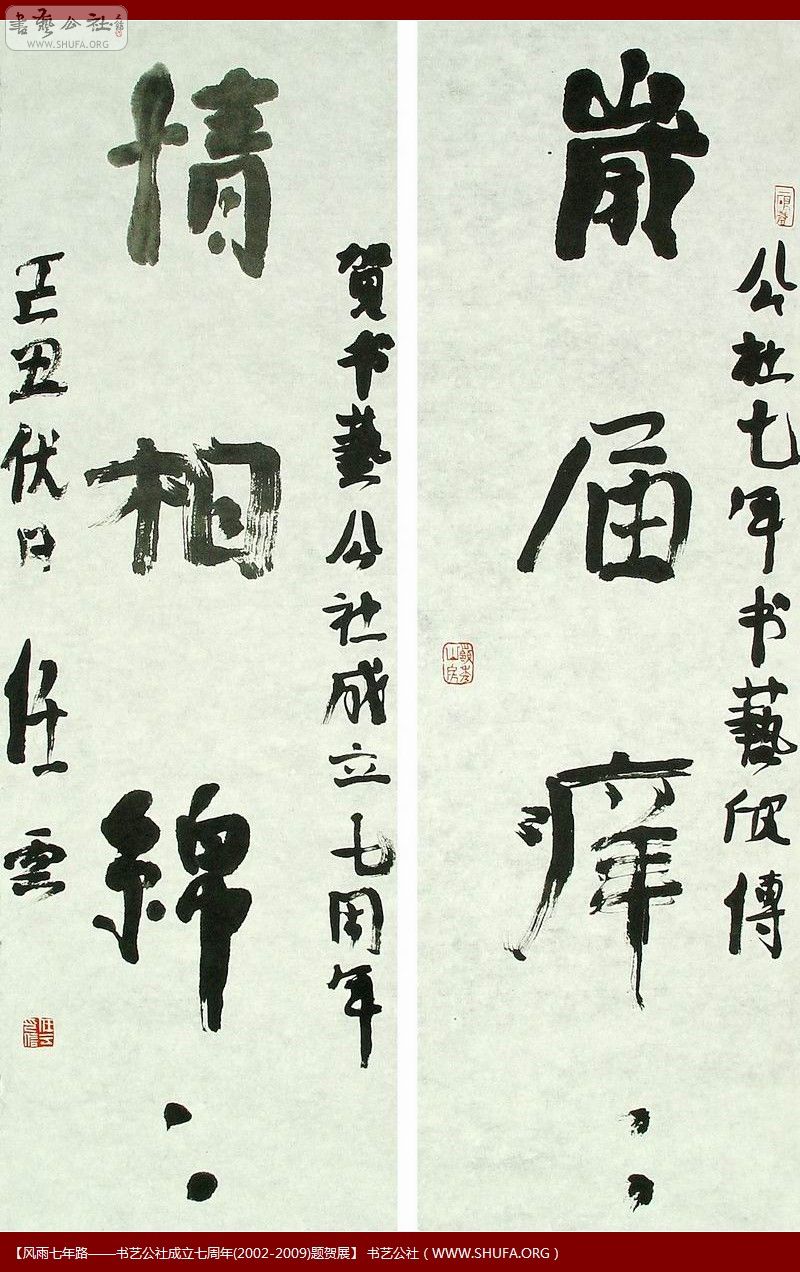 書藝公社
WWW.SHUFA.ORG
公社七年书藝欣傳
嵗届痒：
賀书藝公社成立七周年
情相綿：
己丑伏日 任雲
【风雨七年路——书艺公社成立七周年(2002-2009)题贺展】 书艺公社（WWW.SHUFA.ORG）